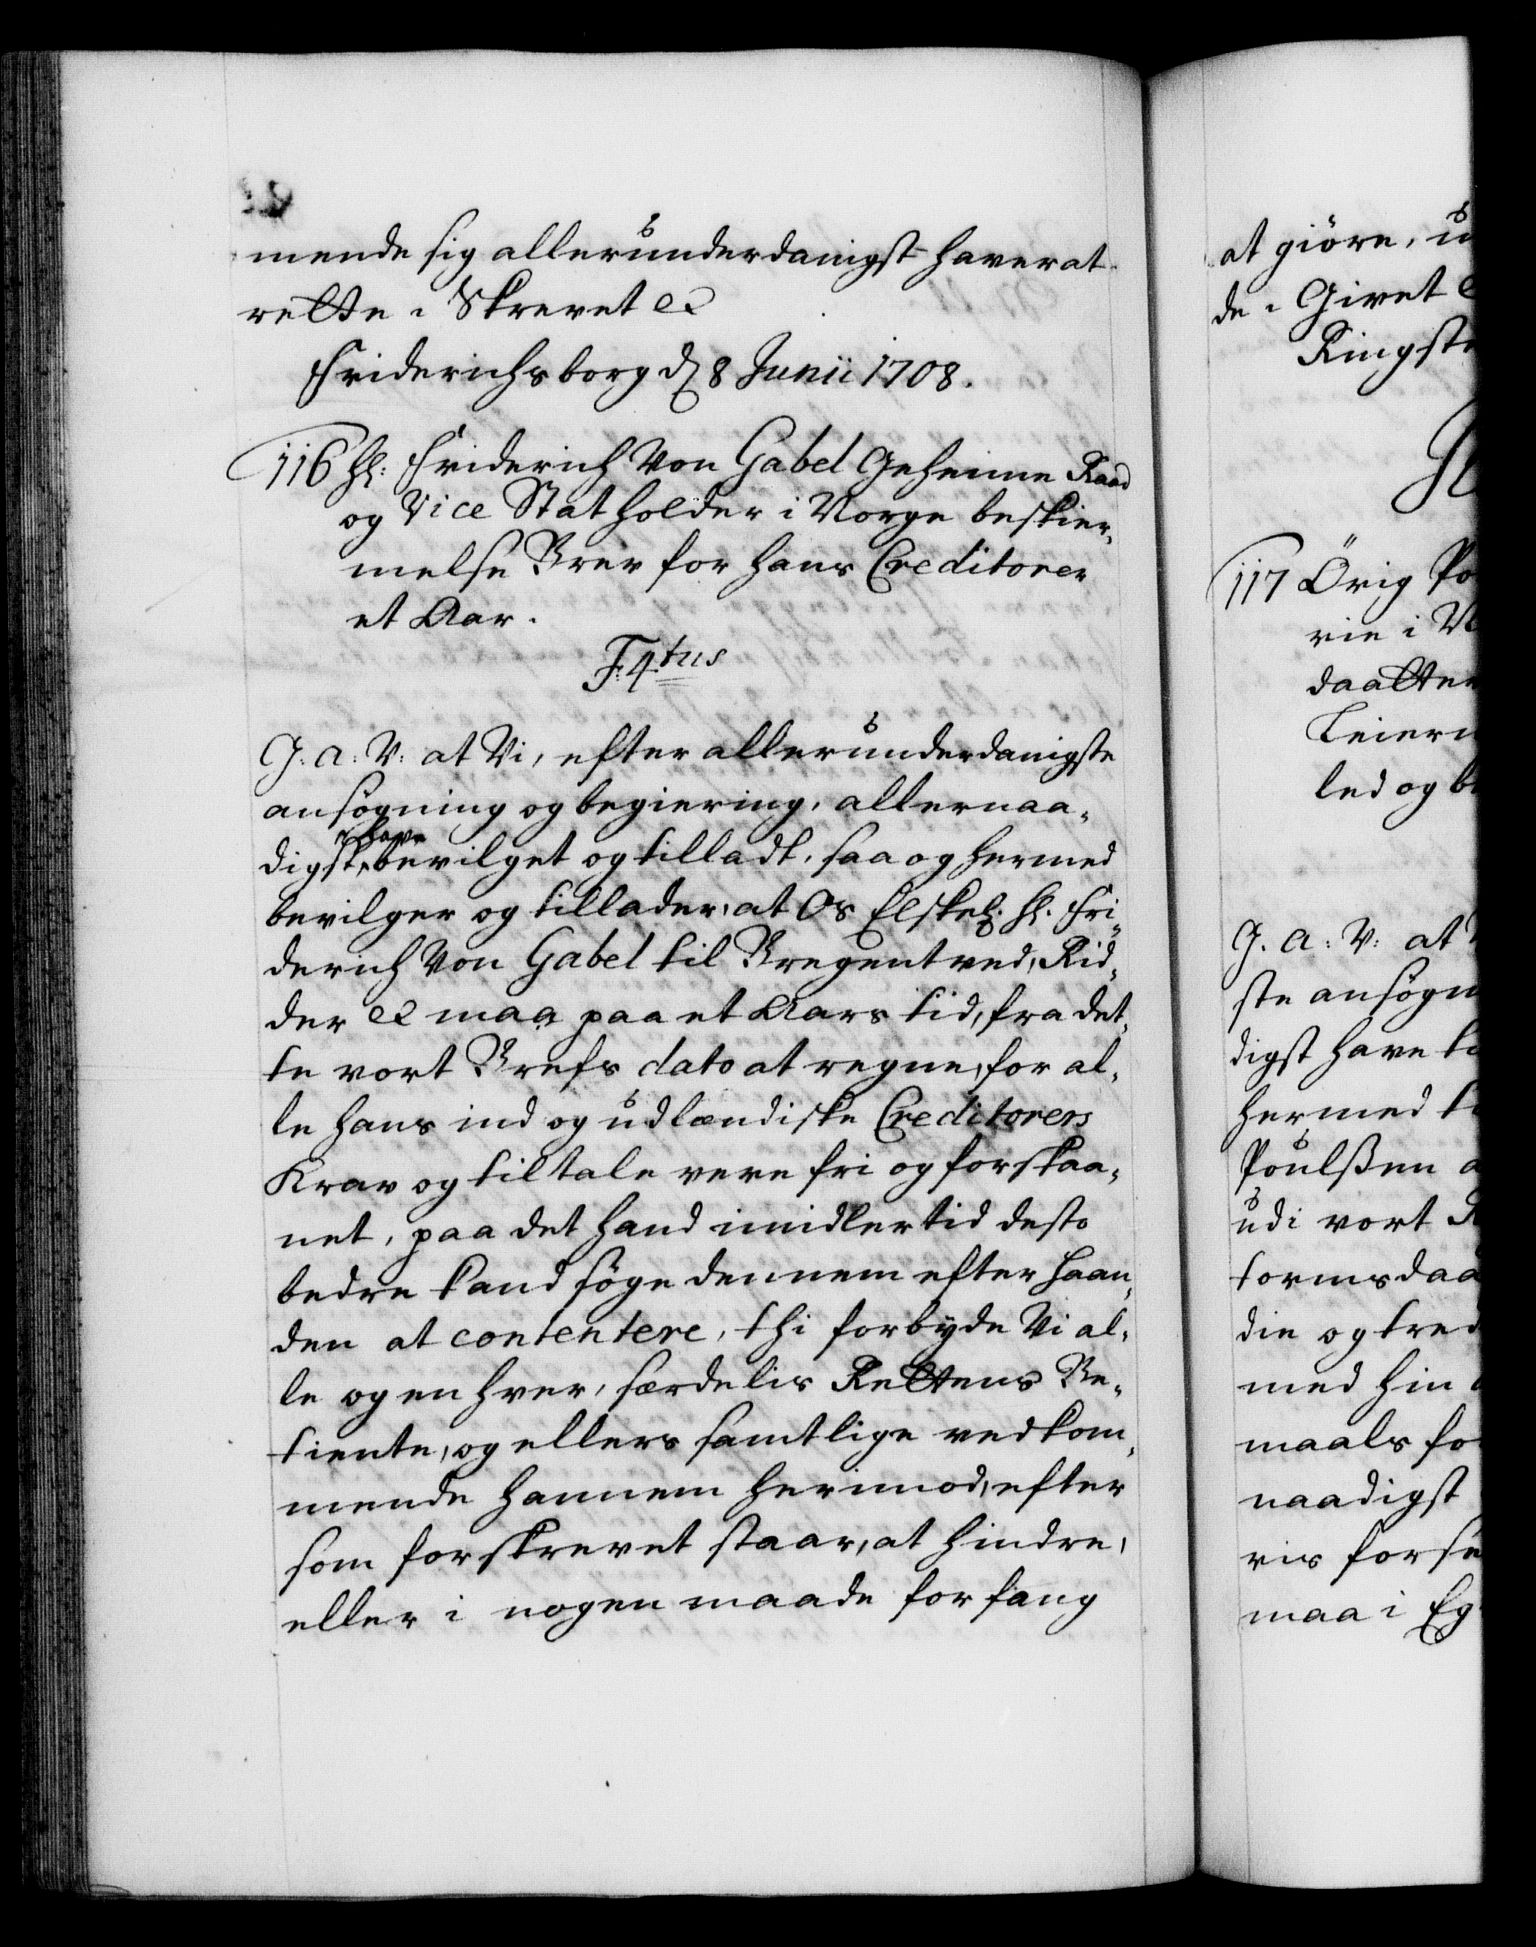 mende sig allerunderdanigst haver at
rette. Skrevet &c
Friderichsborg d 8 Junii 1708.
116 Hl: Friderich Von Gabel Geheime Raad
og Vice Statholder i Norge beskier-
melse Brev for hans Creditorer
et Aar.
F.4.tus
G. A. V: at Vi, efter allerunderdanigste
ansøgning og begiering, allernaa-
digst have bevilget og tilladt, saa og hermed
bevilger og tillader, at Os Elskel. Hl. Fri-
derich Von Gabel til Bregentved, Rid-
der &c maa paa et Aars tid, fra det-
te vort Brefs dato at regne, for al-
le hans ind og udlændiske Creditorers
Krav og tiltale vere fri og forskaa-
net, paa det hand imidlertid desto
bedre kand søge dennem efter haan-
den at contentere, thi forbyde Vi al-
le og en hver, særdelis Rettens Be-
tiente, og ellers samtlige vedkom-
mende hannem herimod, efter
som forskrevet staar, at hindre,
eller i nogen maade forfang
at giøre, u
de. Givet
Ringste
117 Örig Po
rie i
daatter
Leierm
led og be
G. A. V: at
ste ansøgn
digst have
hermed
Poulsen
udi vort
termsdaa
die og tred
med hin
maals for
naadigst
vis forse
maa i Eg